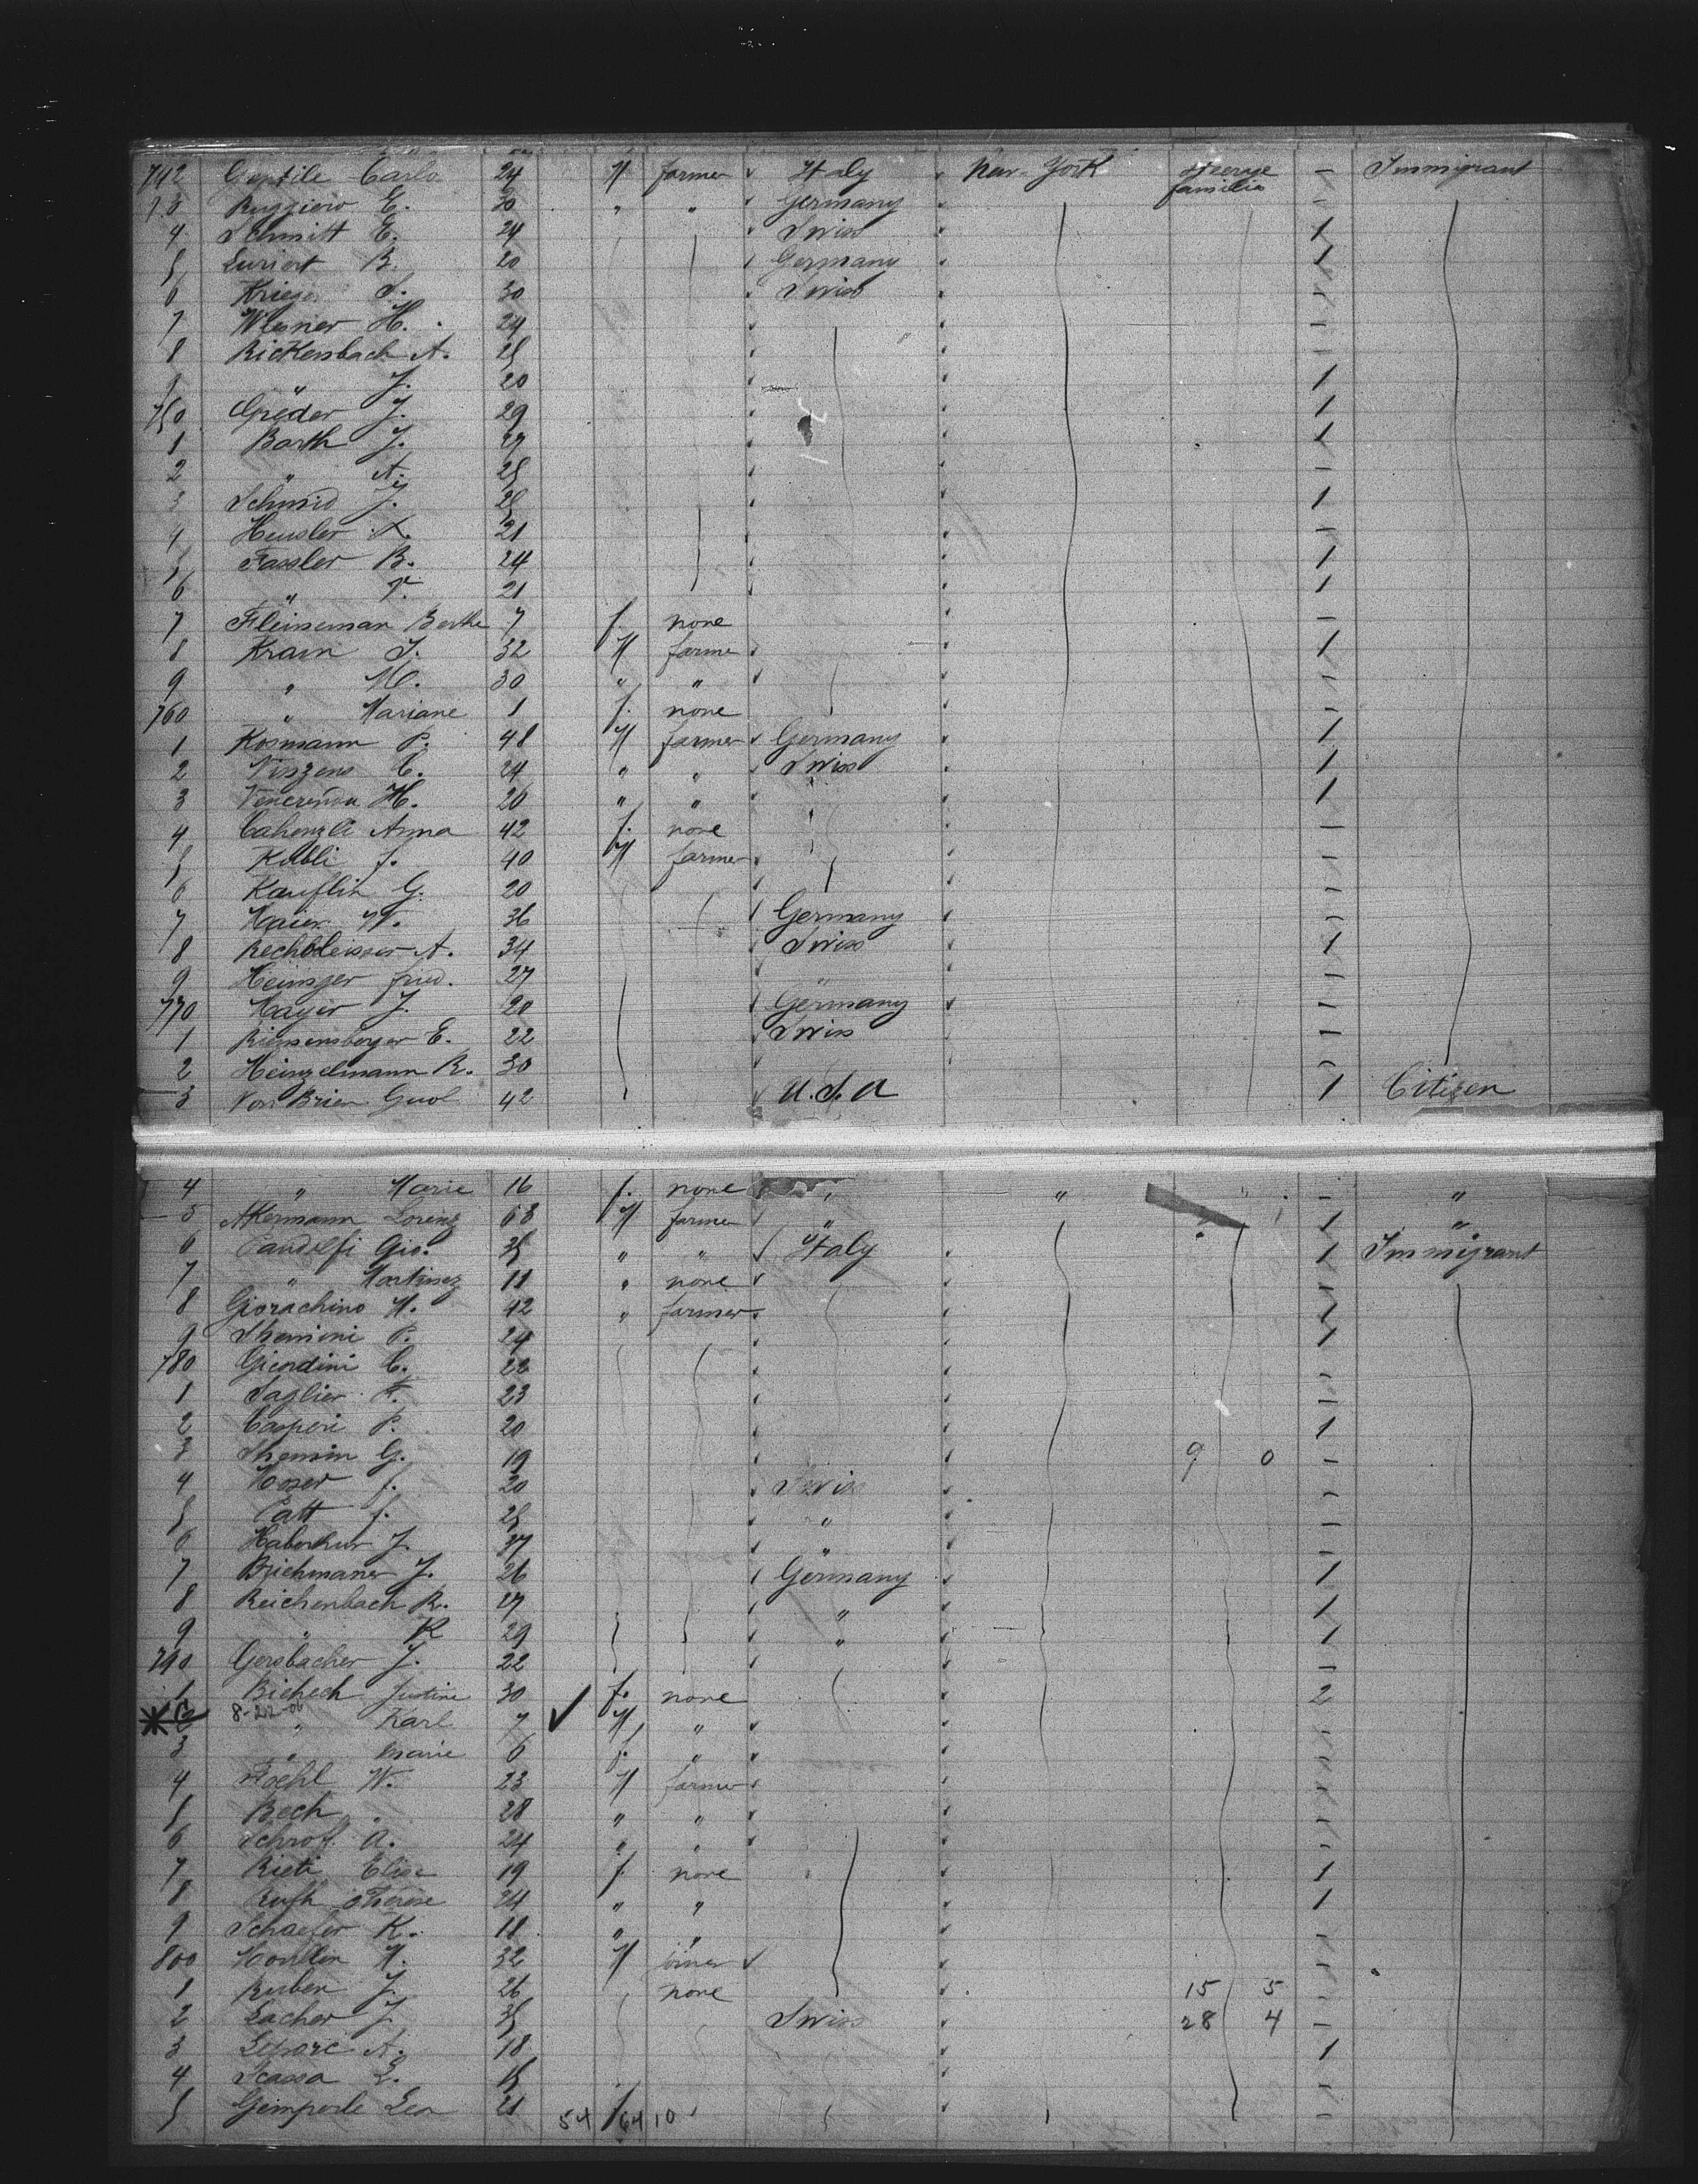 742 Gentile Carlo 24 M farmer Italy New-York steerage families - Immigrant
73 Ruggiero E. 30 " " Germany -
4 Schmitt E. 24 Swiss 1
5 B. 20 Germany 1
6 Krieger S. 30 Swiss -
7 Wesner H. 24 -
8 Rickensbach A. 25 -
9 " J. 20 1
750 Greder J. 29 1
1 Barth J. 27 1
2 " A. 25 -
3 Schmid J. 25 1
4 Heusler X. 21 -
5 Fassler B. 24 1
6 " 21 1
7 Fleinseman Berthe 7 f. none -
8 Kraen J. 32 M farmer 1
9 " M. 30 " " -
760 " Mariane 1 f. none -
1 Kosmann P. 48 M farmer Germany 1
2 C. 24 " " Swiss 1
3 H. 20 " " 1
4 Cahenzli Anna 42 f. none -
5 Kubli J. 40 M farmer -
6 Kauflin G. 20 -
7 Maier W. 36 Germany -
8 A. 34 Swiss 1
9 Heinsger fried. 27 " -
770 Mayer J. 20 Germany -
1 Riensensberger E. 22 Swiss -
2 Heinzelmann R. 30 -
3 Von Brien 42 U.S.A 1 Citizen
4 " Marie 16 f. none " " - "
5 Akermann Lorenz 63 M farmer " 1 "
6 Pandolfi Gio. 35 " " Italy 1 Immigrant
7 " Martinez 11 " none -
8 Giorachino M. 42 " farmer 1
9 Themini P. 24 1
780 Giordini C. 22 -
1 Saglier F. 23 -
2 Casperi P. 20 1
3 Themin G. 19 9 0 -
4 Moser f. 20 Swiss -
5 Catt f. 25 " -
6 Haberkur J. 37 " -
7 Brichmaner J. 26 Germany 1
8 Reichenbach R. 27 " 1
9 " K 29 " 1
790 Gersbacher J. 22 -
1 Biehech Justine 30 f. none 2
2 8-22-06 " Karl 7 ✓ M " -
3 " Marie 6 f. " -
4 Foehl W. 23 M farmer -
5 Bech 28 " " -
6 Schrof A. 24 " " -
7 Rieti Elise 19 f. none 1
8 Rufh Therese 24 " " 1
9 Schaefer K. 11 " " -
800 M. 32 M -
1 Ruben J. 26 none 15 5 -
2 Lacher J. 35 Swiss 28 4 -
3 A. 18 1
4 Scassa L. 15 -
5 Gemperle Lea 21 54 f. 64 10 -